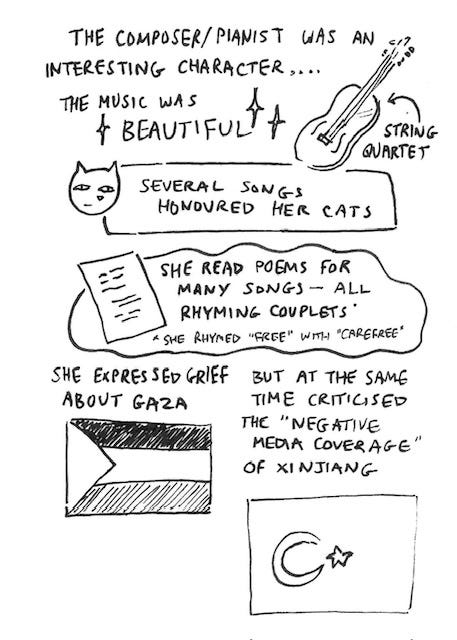 THE COMPOSER/PIANIST WAS AN
INTERESTING CHARACTER....
THE MUSIC WAS
BEAUTIFUL
STRING
QUARTET
SEVERAL SONGS
HONOURED HER CATS
SHE READ POEMS FOR
MANY SONGS — ALL
RHYMING COUPLETS*
*SHE RHYMED "FREE" WITH "CAREFREE"
SHE EXPRESSED GRIEF
ABOUT GAZA
BUT AT THE SAME
TIME CRITICISED
THE "NEGATIVE
MEDIA COVERAGE"
OF XINJIANG